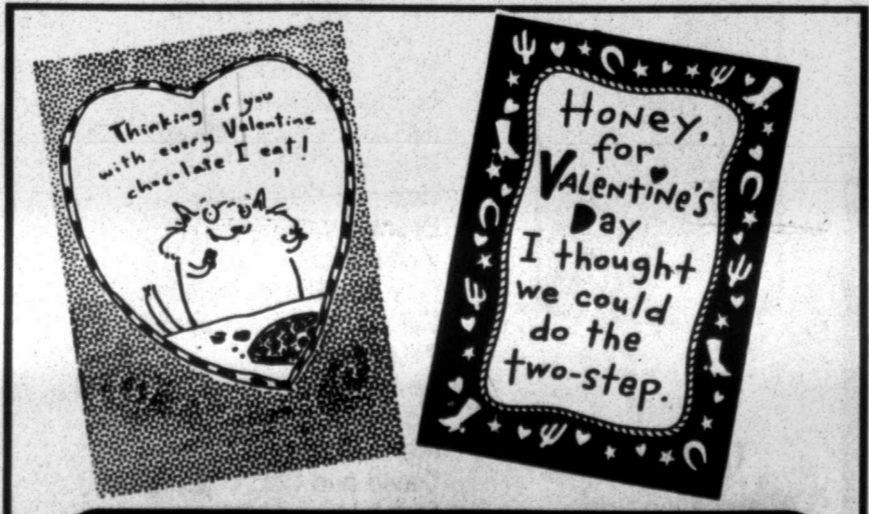 Thinking of you
with every Valentine
chocolate I eat!
HONEY,
for
VALENTINE'S
Day
I thought
we could
do the
two-step.